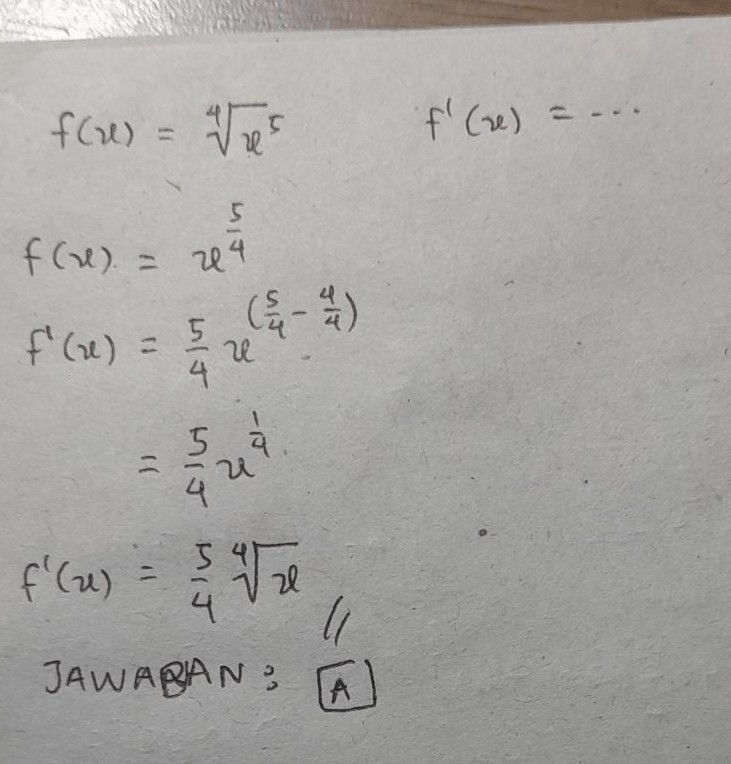 f(x) = ⁴√x⁵    f'(x) = ---
f(x) = x^(5/4)
f'(x) = 5/4 x^(5/4 - 4/4)
= 5/4 x^(1/4)
f'(x) = 5/4 ⁴√x //
JAWABAN : A